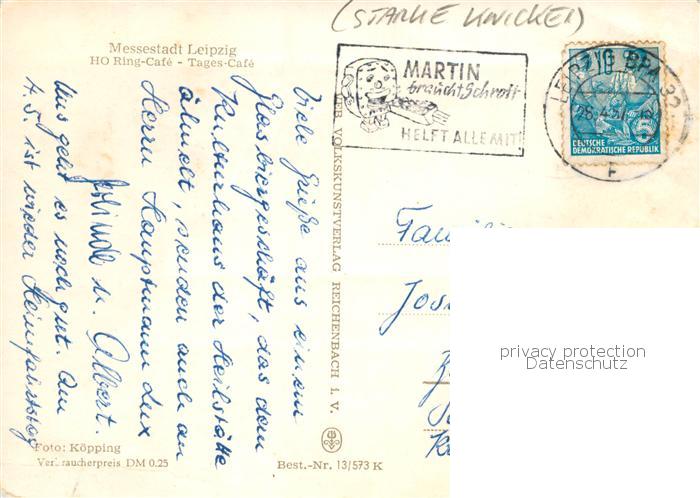 (STARKE KNICKE!)
Messestadt Leipzig
HO Ring-Café - Tages-Café
MARTIN
braucht Schrott
HELFT ALLE MIT!
LEIPZIG BPA 32
5
DEUTSCHE
DEMOKRATISCHE REPUBLIK
F
Viele Grüße aus einem
Glasbiergeschäft, das dem
Kulturhaus der Heilstätte
ähnelt, senden auch an
Herrn Hauptmann Lux
u. Albert.
Uns geht es noch gut. Am
4.5. ist wieder Heimfahrtstag
VOLKSKUNSTVERLAG REICHENBACH i. V.
Famili
Jos
privacy protection
Datenschutz
Foto: Köpping
Verbraucherpreis DM 0.25
Best.-Nr. 13/573 K